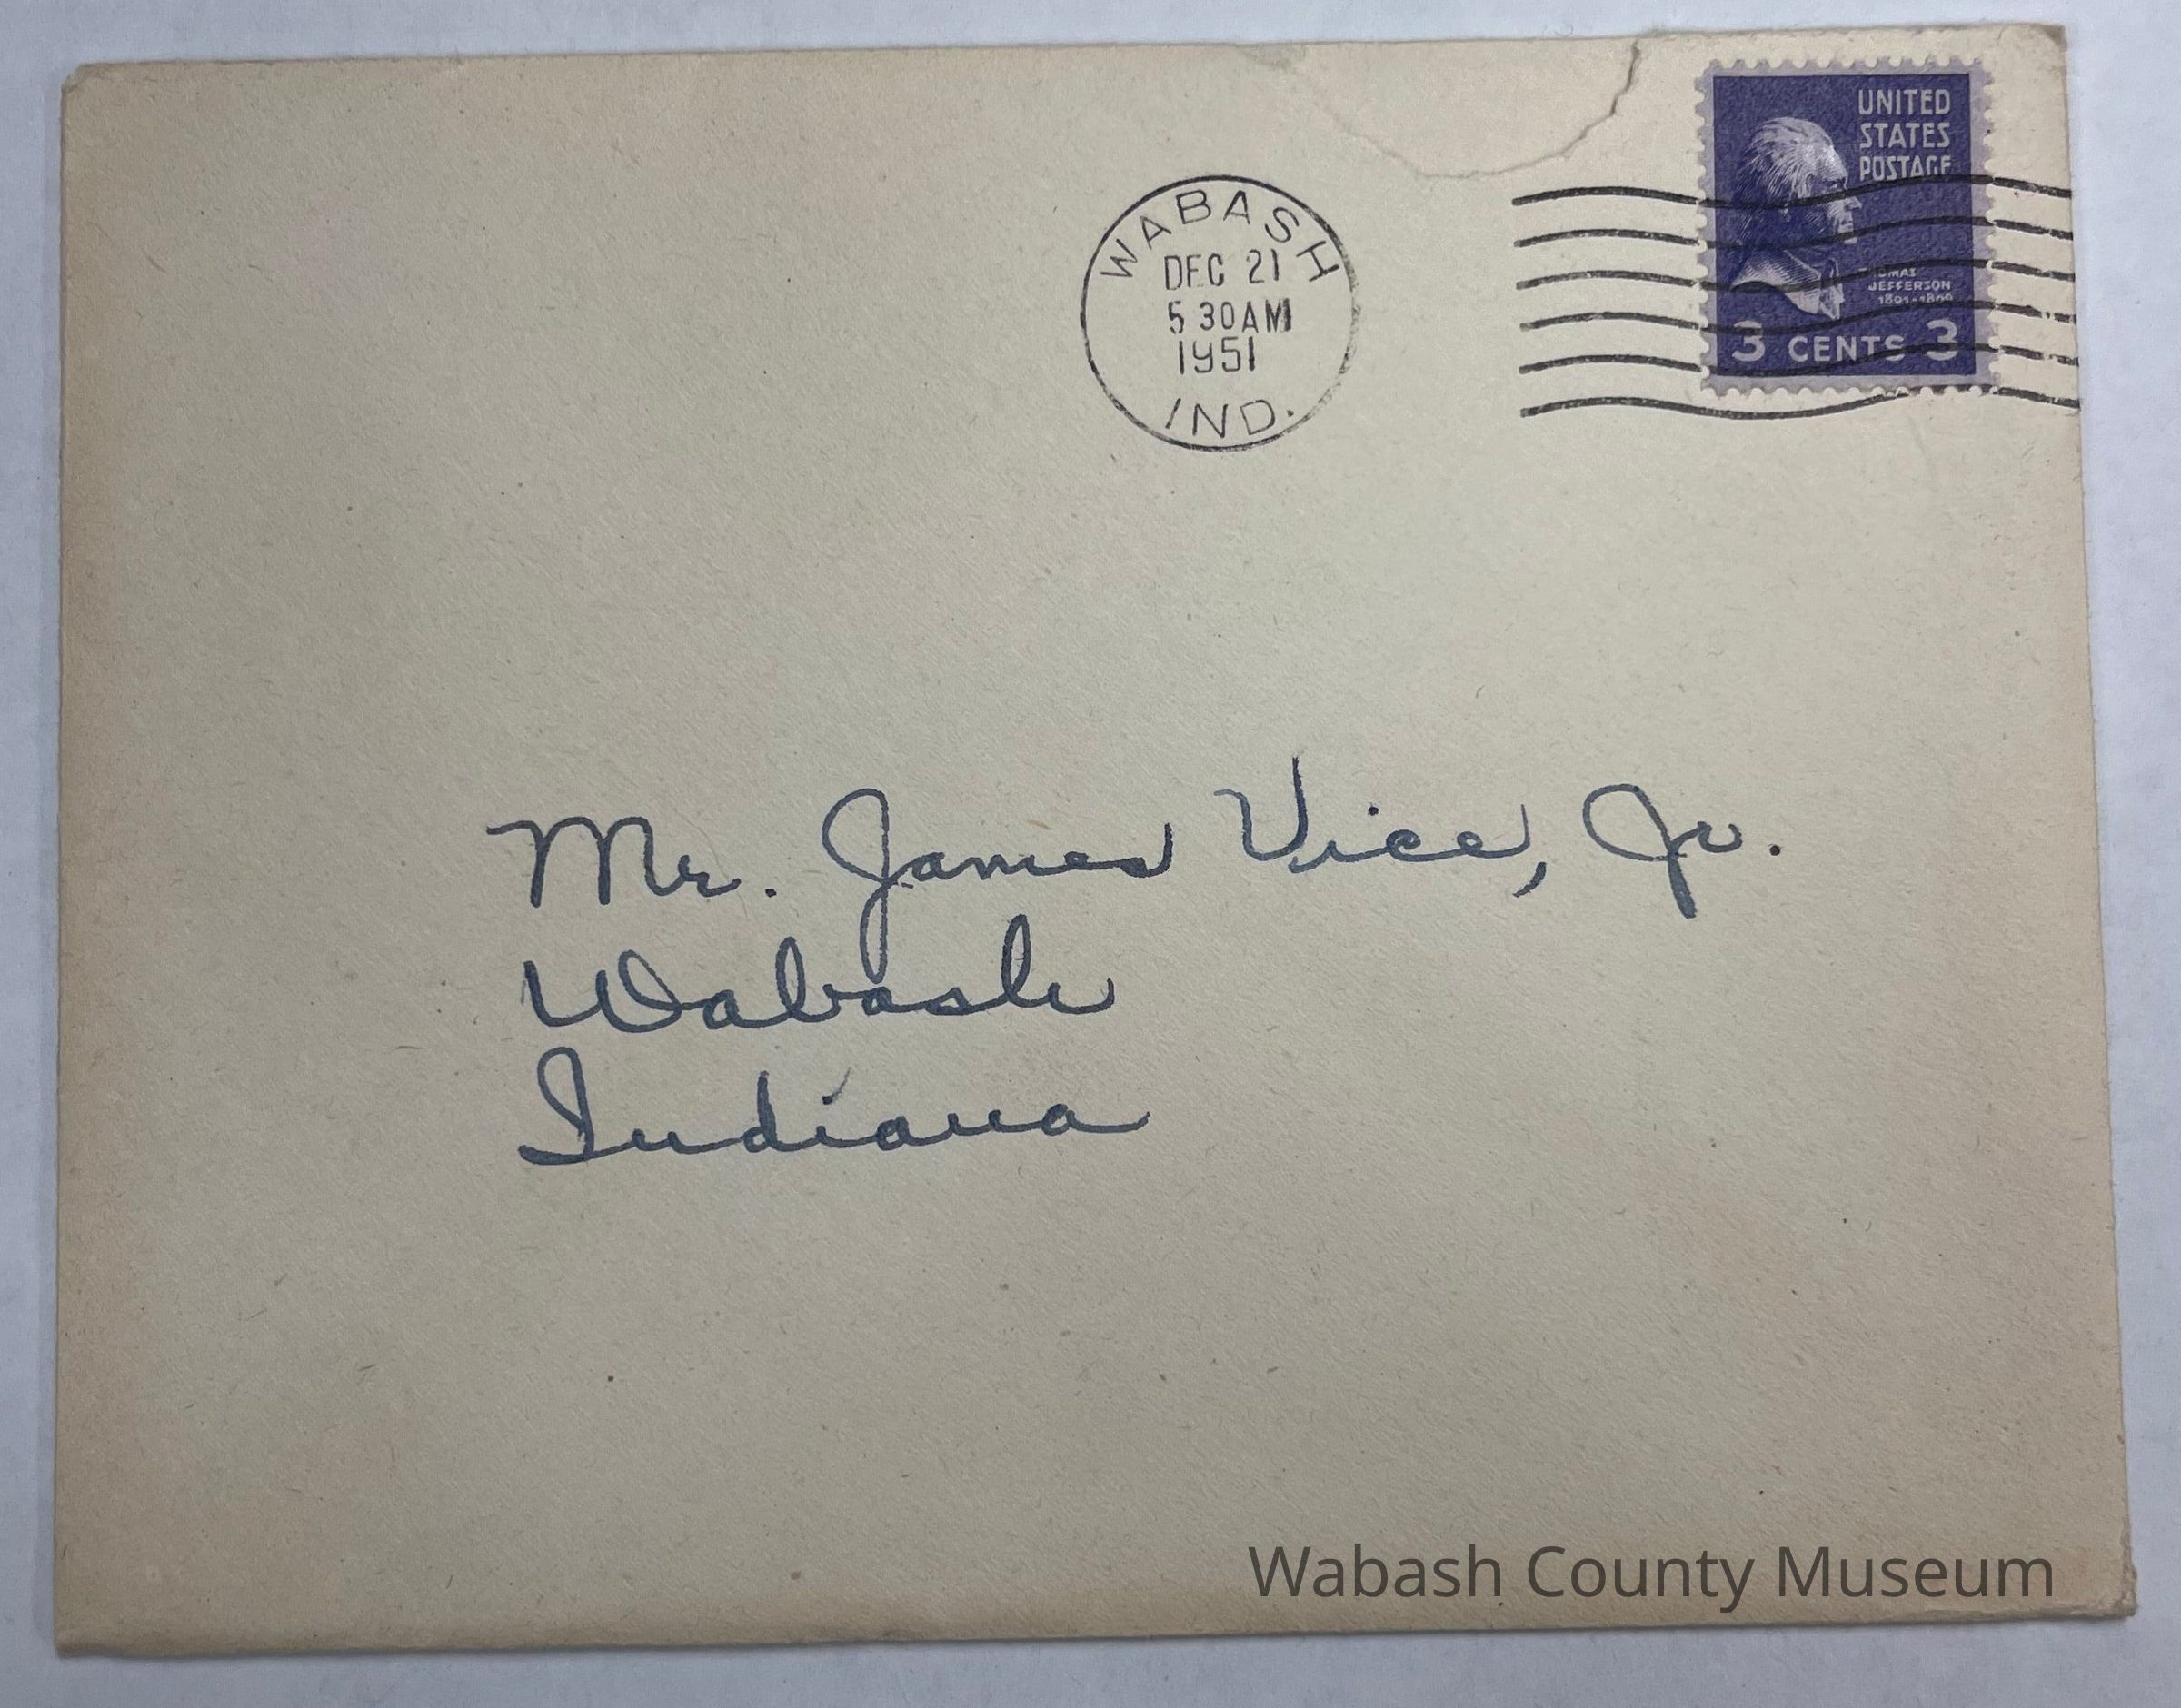 WABASH
DEC 21
5 30 AM
1951
IND.
UNITED
STATES
POSTAGE
THOMAS
JEFFERSON
1801-1809
3 CENTS 3
Mr. James Vice, Jr.
Wabash
Indiana
Wabash County Museum